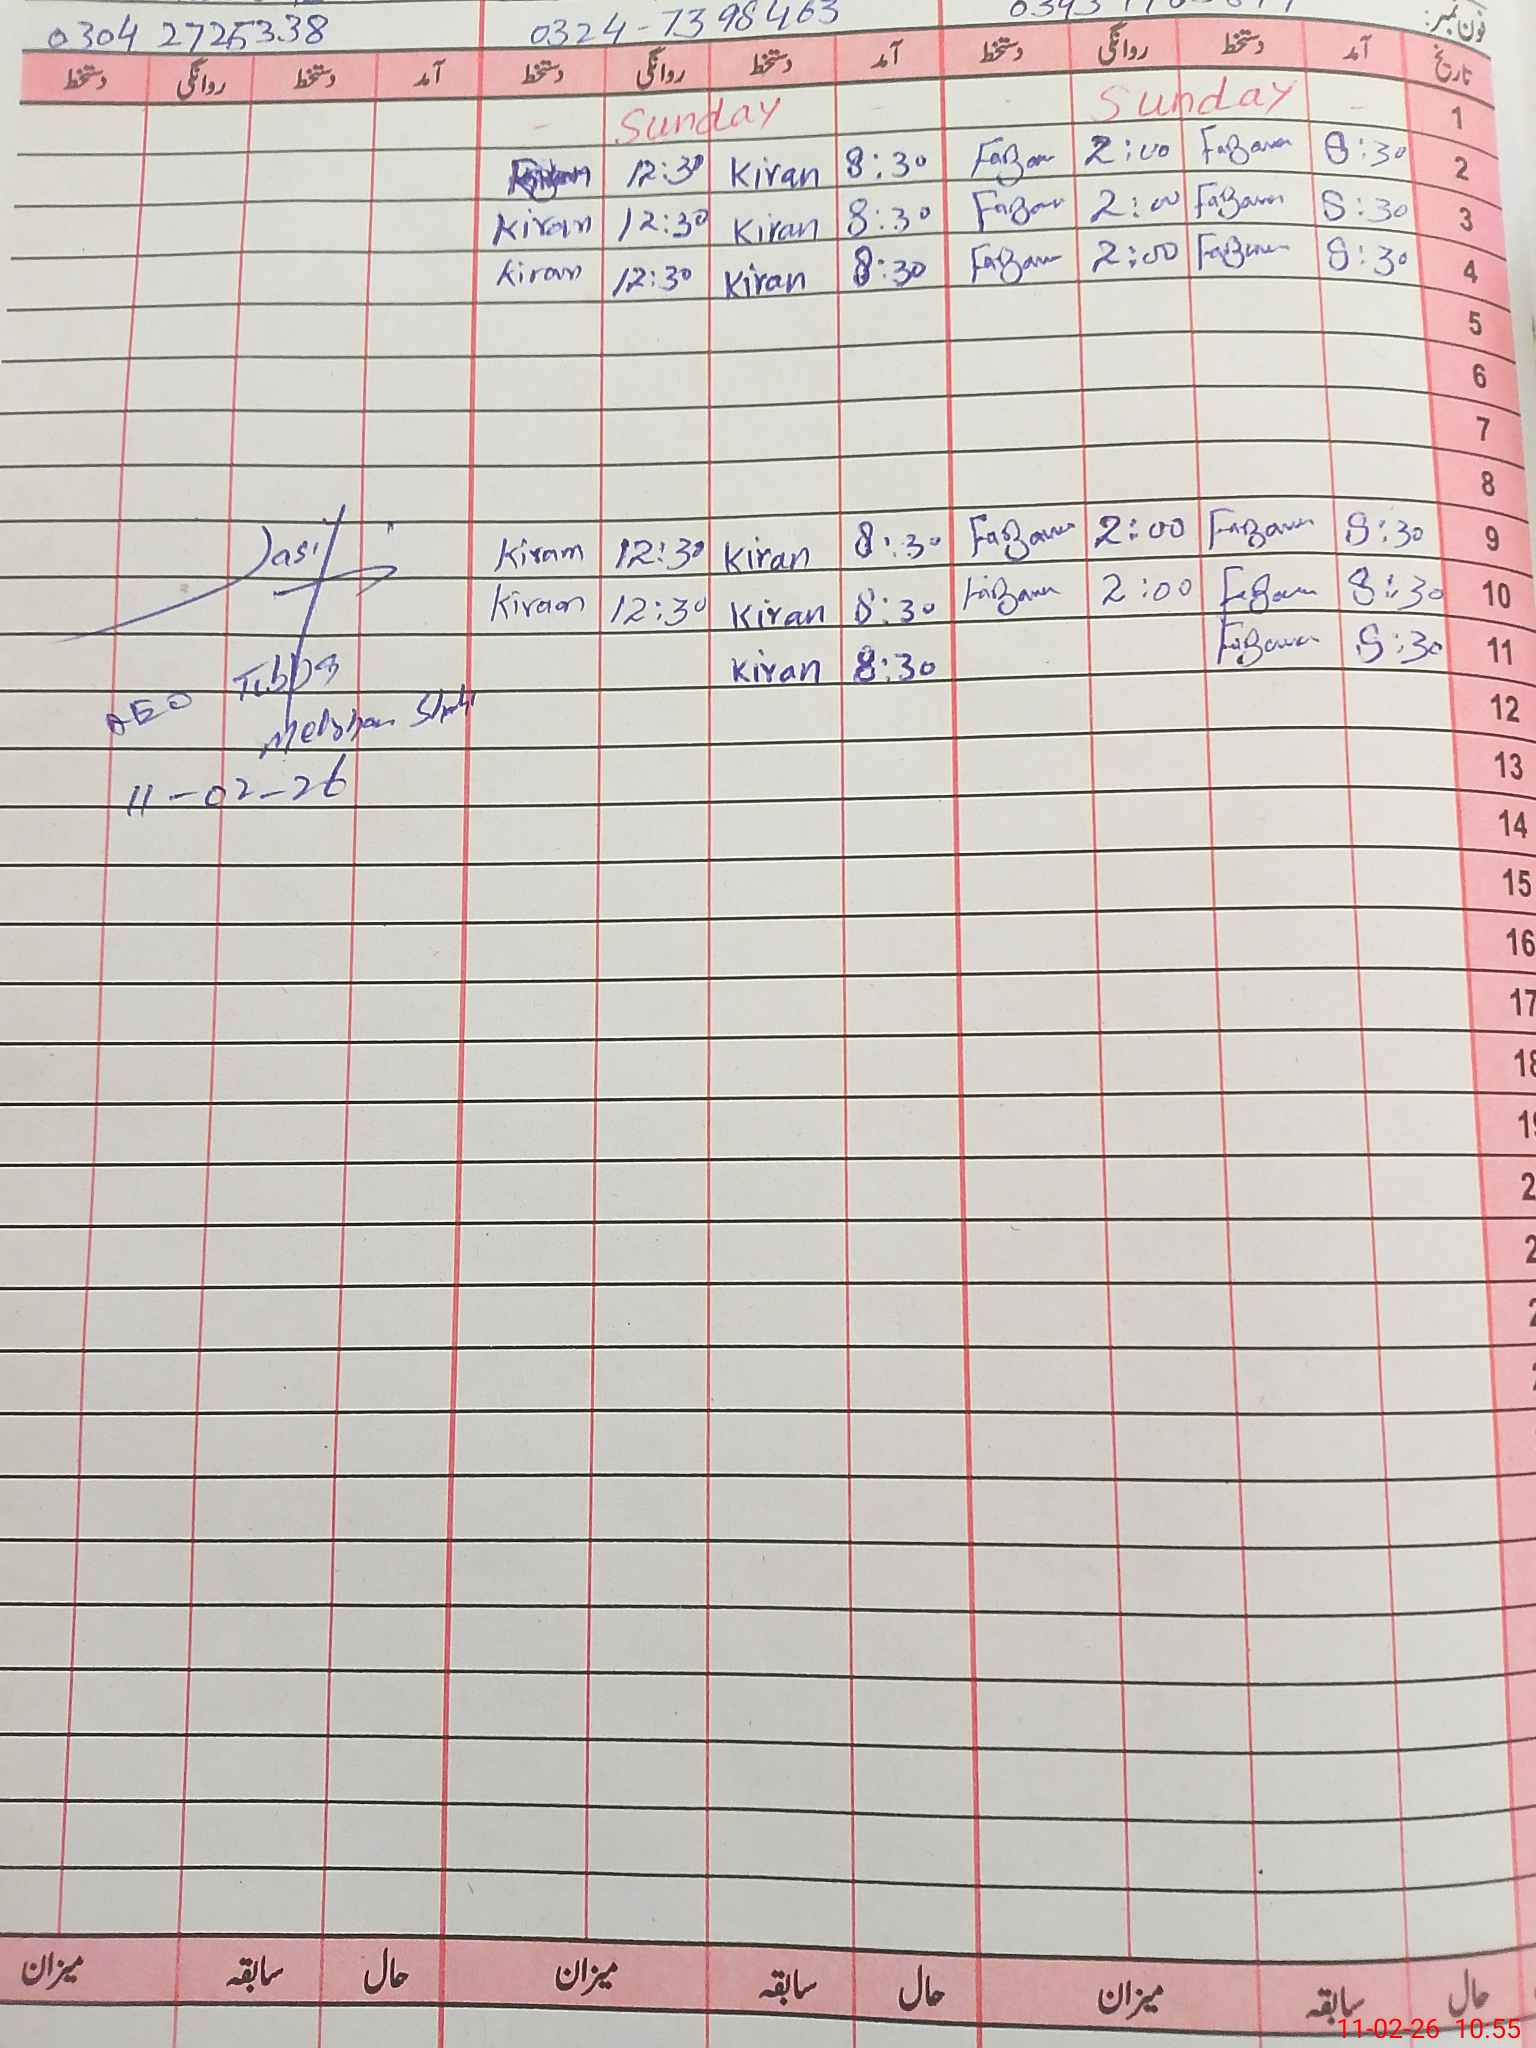 فون نمبر:
0304 2725338 0324-7398463
تاریخ آمد دستخط روانگی دستخط آمد دستخط روانگی دستخط آمد دستخط روانگی دستخط
1 - Sunday - - Sunday -
2 8:30 Farzana 2:00 Farzana 8:30 Kiran 12:30
3 8:30 Farzana 2:00 Farzana 8:30 Kiran 12:30 Kiran
4 8:30 Farzana 2:00 Farzana 8:30 Kiran 12:30 Kiran
5
6
7
8
9 8:30 Farzana 2:00 Farzana 8:30 Kiran 12:30 Kiran
10 8:30 Farzana 2:00 Farzana 8:30 Kiran 12:30 Kiran
11 8:30 Farzana 8:30 Kiran
12
13
14
15
16
17
18
19
AEO
11-02-26
حال سابقہ میزان حال سابقہ میزان حال سابقہ میزان
11-02-26 10.55